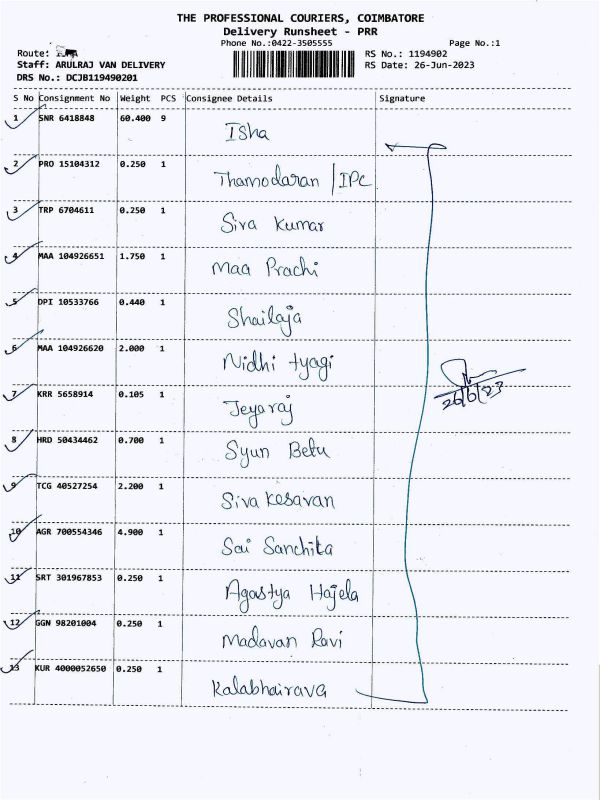 THE PROFESSIONAL COURIERS, COIMBATORE
Delivery Runsheet - PRR
Phone No.:0422-3505555 Page No.:1
Route:
Staff: ARULRAJ VAN DELIVERY
DRS No.: DCJB119490201
RS No.: 1194902
RS Date: 26-Jun-2023
S No Consignment No Weight PCS Consignee Details Signature
1 SNR 6418848 60.400 9 Isha
2 PRO 15104312 0.250 1 Thamodaran / IPC
3 TRP 6704611 0.250 1 Siva Kumar
4 MAA 104926651 1.750 1 Maa Prachi
5 DPI 10533766 0.440 1 Shailaja
6 MAA 104926620 2.000 1 Nidhi tyagi
7 KRR 5658914 0.105 1 Jeyaraj
8 HRD 50434462 0.700 1 Syun Betu
9 TCG 40527254 2.200 1 Siva Kesavan
10 AGR 700554346 4.900 1 Sai Sanchita
11 SRT 301967853 0.250 1 Agastya Hajela
12 GGN 98201004 0.250 1 Madavan Ravi
13 KUR 4000052650 0.250 1 Kalabhairava
26/6/23